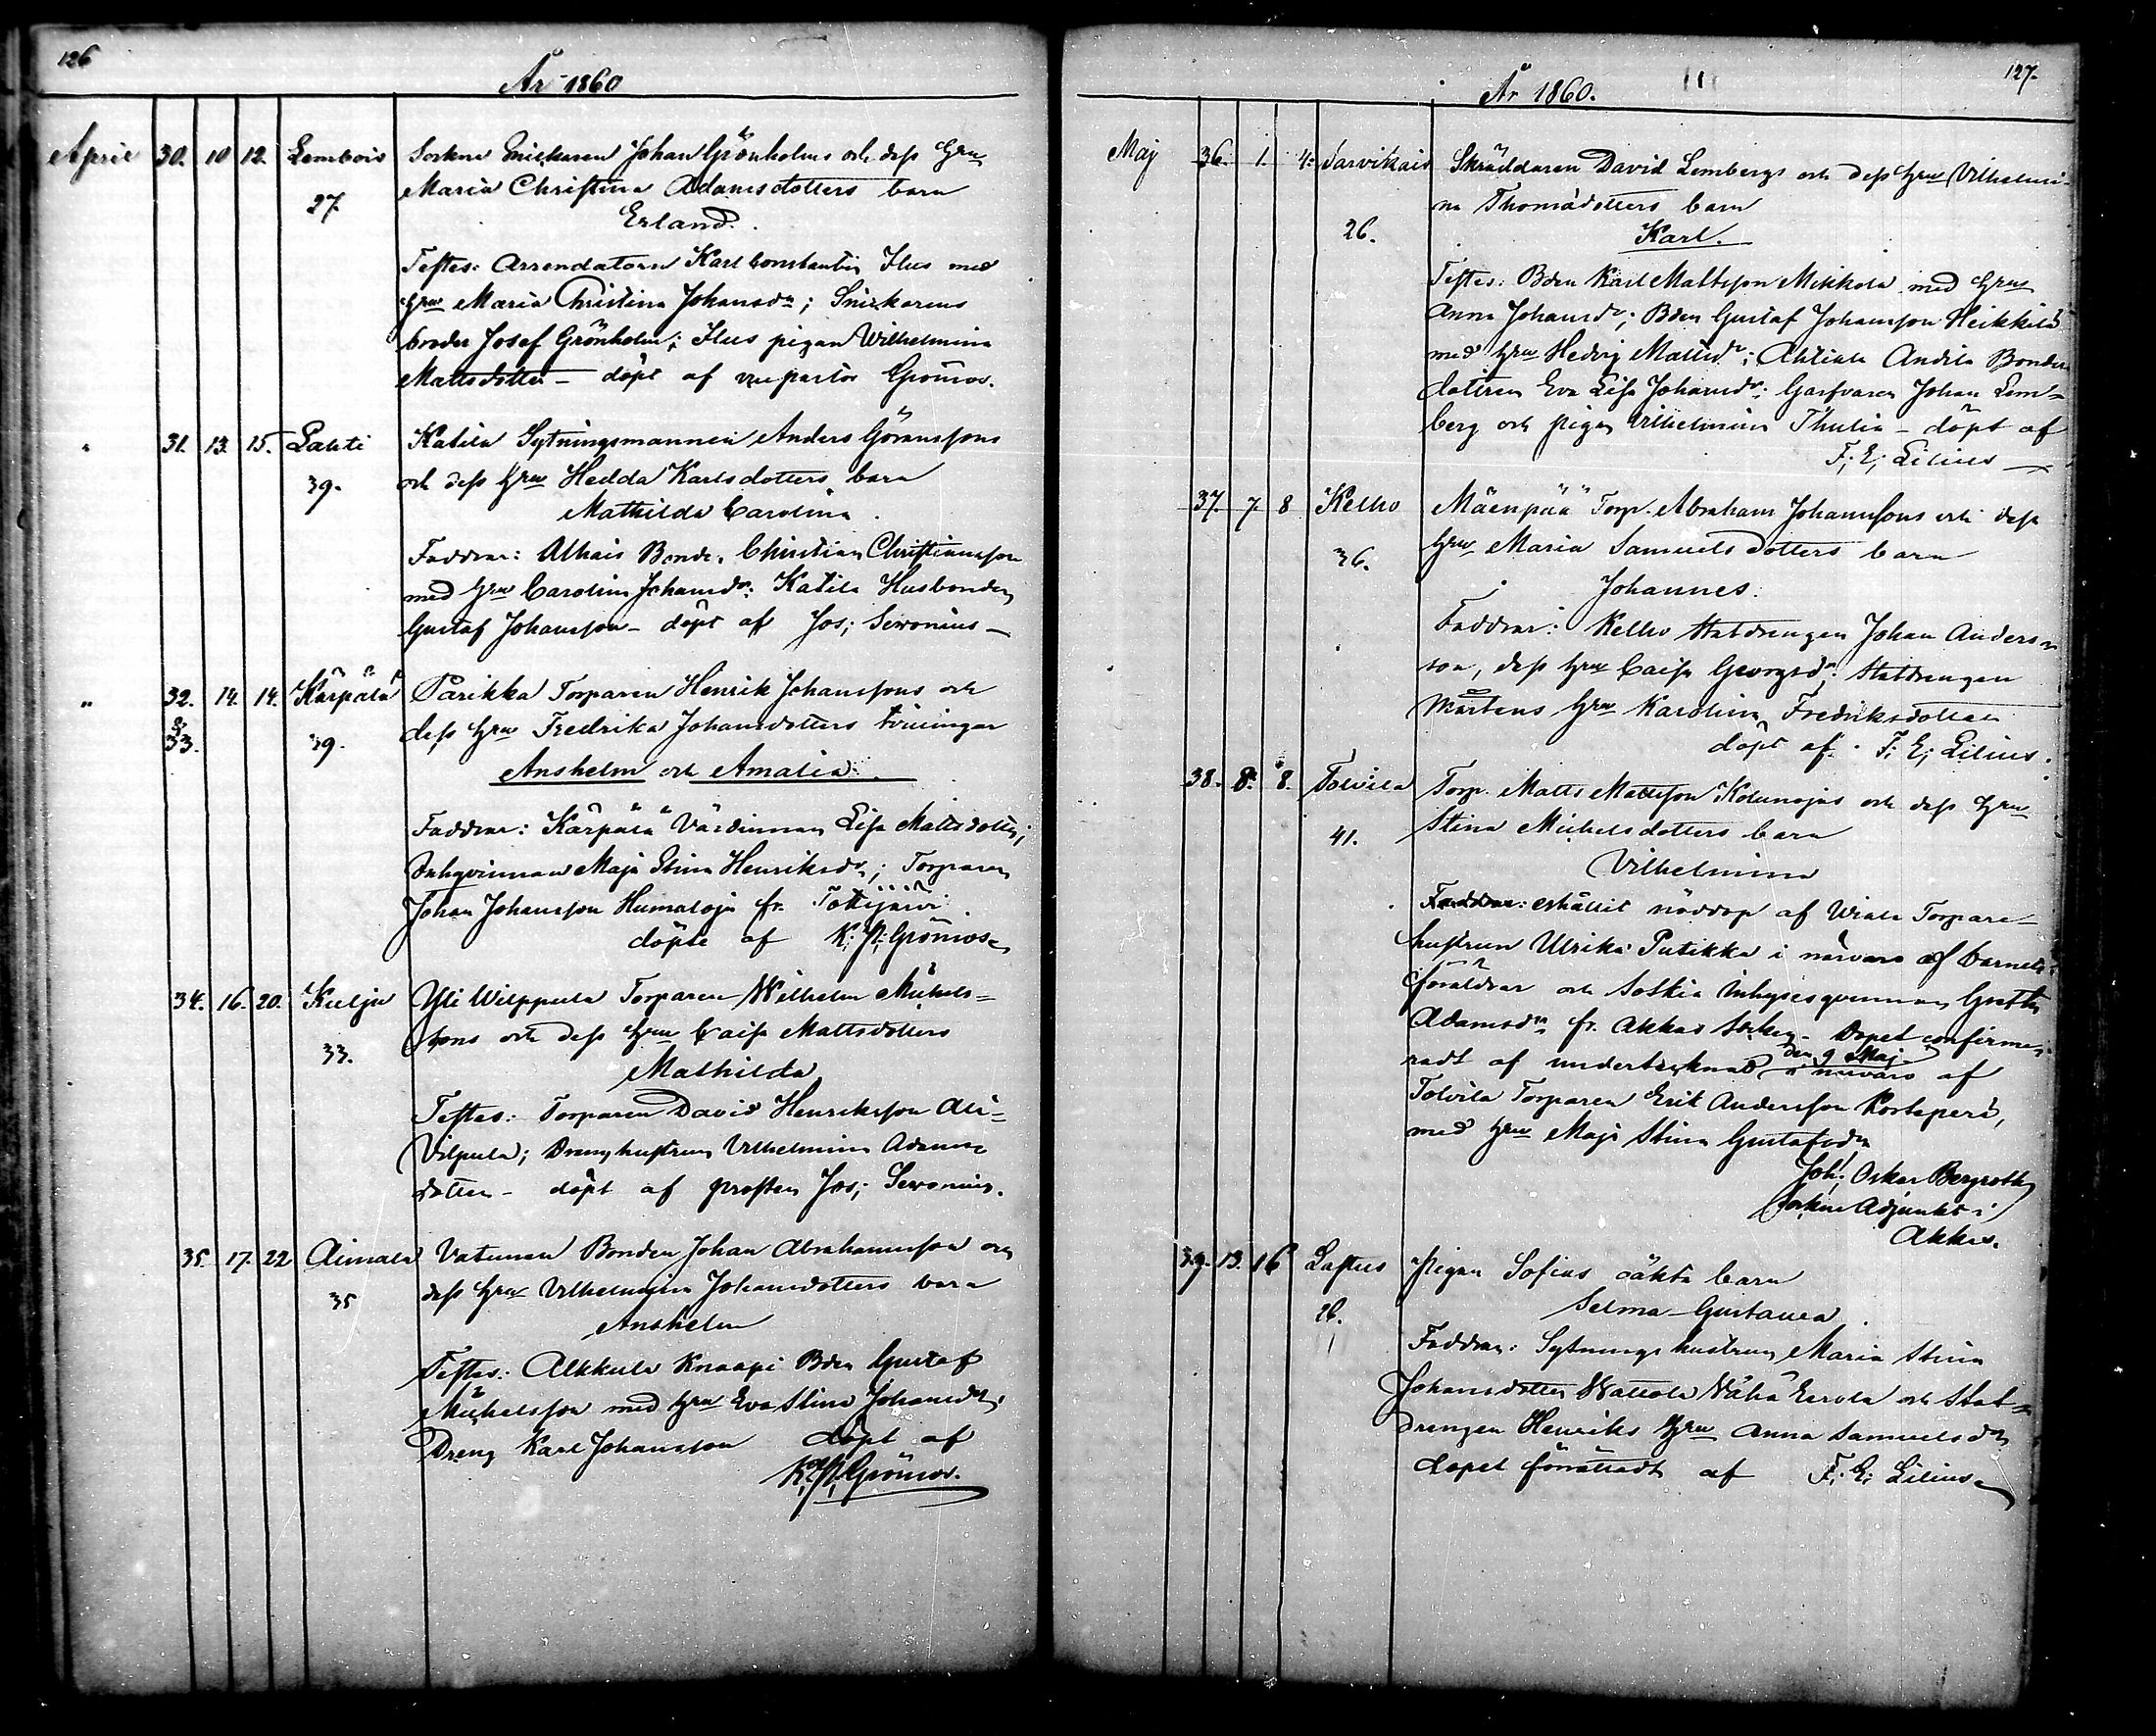 126
År 1860
April 30. 10 12. Lembois Sockne Snickaren Johan Grönholms och dess Hru
27. Maria Christina Adamsdotters barn
Erland.
Testes: Arrendatorn Karl Constantin Ilus med
Hru Maria Christina Johansdr; Snickarens
broder Josef Grönholm; Ilus pigan Wilhelmina
Mattsdotter – döpt af vice pastor Grönros.
" 31. 13. 15. Lahti Katila Sytningsmannen Anders Göranssons
39. och dess Hru Hedda Karlsdotters barn
Mathilda Carolina.
Faddrar: Alhais Bonde, Christian Christiansson
med Hru Carolina Johansdr: Katila Husbonden
Gustaf Johansson – döpt af Jos; Seronius –
" 32. 14. 14. Kärpälä Parikka Torparen Henrik Johanssons och
& 33. 39. dess Hru Fredrika Johansdotters tvillingar
Anshelm och Amalia.
Faddrar: Kärpälä Värdinnan Lisa Mattsdotter;
Inhqvinnan Maja Stina Henriksdr; Torparen
Johan Johansson Humaloja fr. Tottijärvi.
döpte af K; H; Grönros.
34. 16. 20. Kulju Yli Wilppula Torparen Wilhelm Michels=
33. sons och dess Hru Caisa Mattsdotters
Mathilda
Testes: Torparen David Henriksson Ali=
Vilpula; Drenghustrun Vilhelmina Adams=
dotter – döpt af prosten Jos; Seronius.
35. 17. 22 Aimala Vatunen Bonden Johan Abrahamsson och
35 dess Hru Vilhelmina Johansdotters barn
Anshelm
Testes: Alkkula Knaapi Bden Gustaf
Michelsson med Hru Eva Stina Johansdr;
Dreng Karl Johansson döpt af
K; H; Grönros.
127.
År 1860.
Maj 36. 1. 4. Sarvikais Skräddaren David Lembergs och dess Hru Vilhelmi-
26. na Thomädotters barn
Karl.
Testes: Bden Karl Mattsson Mikkola med Hru
Anna Johansdr; Bden Gustaf Johansson Heikkilä
med Hru Hedvig Mattsdr; Ahtiala Andila Bonde
dottren Eva Lisa Johansdr; Garfvaren Johan Lem=
berg och pigan Vilhelmina Thulin – döpt af
F; E; Lilius –
37. 7. 8 Kelho Mäenpää Torp. Abraham Johanssons och dess
36. Hru Maria Samuelsdotters barn
Johannes.
Faddrar: Kelho Statdrengen Johan Anders=
son, dess Hru Caisa Georgsdr; Statdrengen
Mårtens Hru Karolina Fredriksdotter
döpt af F; E; Lilius.
38. 8. 8. Tolvila Torp. Matts Mattsson Kolunojas och dess Hru
41. Stina Michelsdotters barn
Vilhelmina
Faddrar: erhållit nöddop af Wiala Torpare
hustrun Ulrika Putikka i närvaro af barnets
föräldrar och Sotkia Inhysesqvinnan Gretha
Adamsdr fr. Akkas Socken – Dopet confirme=
radt af undertecknad den 9 Maj i närvaro af
Tolvila Torparen Erik Andersson Korteperä,
med Hru Maja Stina Gustafsdr
Joh; Oskar Bergroth
Sockne Adjunkt i
Akkas.
39. 13. 16 Laftus Pigan Sofias oäkta barn
26. Selma Gustava.
Faddrar: Sytningshustrun Maria Stina
Johansdotter Wattola Nähä Eerola och Stat=
drengen Henriks Hru Anna Samuelsdr
dopet förrättadt af F; E; Lilius